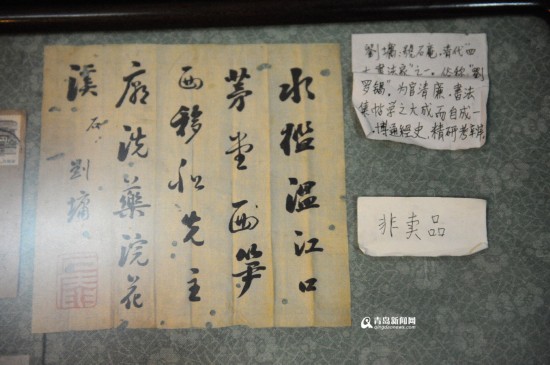 水檻温江口
茅堂石笋
西移船先主
廟洗藥浣花
溪
石 劉墉
劉墉，號石庵，清代“四
大書法家”之一。俗称“劉
罗锅”为官清廉，書法
集帖学之大成而自成一
博通經史，精研考
非卖品
青岛新闻网
qingdaonews.com